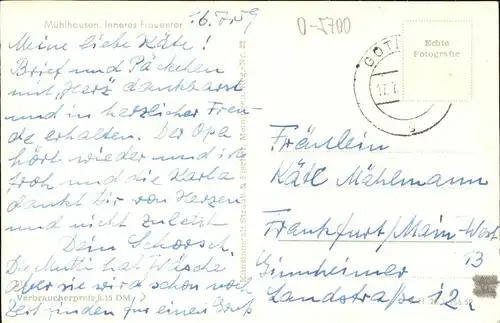 Mühlhausen. Inneres Frauentor
16.7.59
0-5700
Meine liebe Käte!
Brief und Päckchen
mit „Herz" dankbarst
und in herzlicher Freu-
de erhalten. Der Opa
hört wieder und ist
froh und die Karla
dankt Dir von Herzen
und nicht zuletzt
Dein Schorsch.
Die Mutti hat Wäsche
aber sie wird schon noch
Zeit finden für einen Gruß
Verbraucherpreis 0,15 DM
Echte
Fotografie
Fräulein
Käte Mählmann
Frankfurt/Main-West
13
Ginnheimer
Landstraße 12